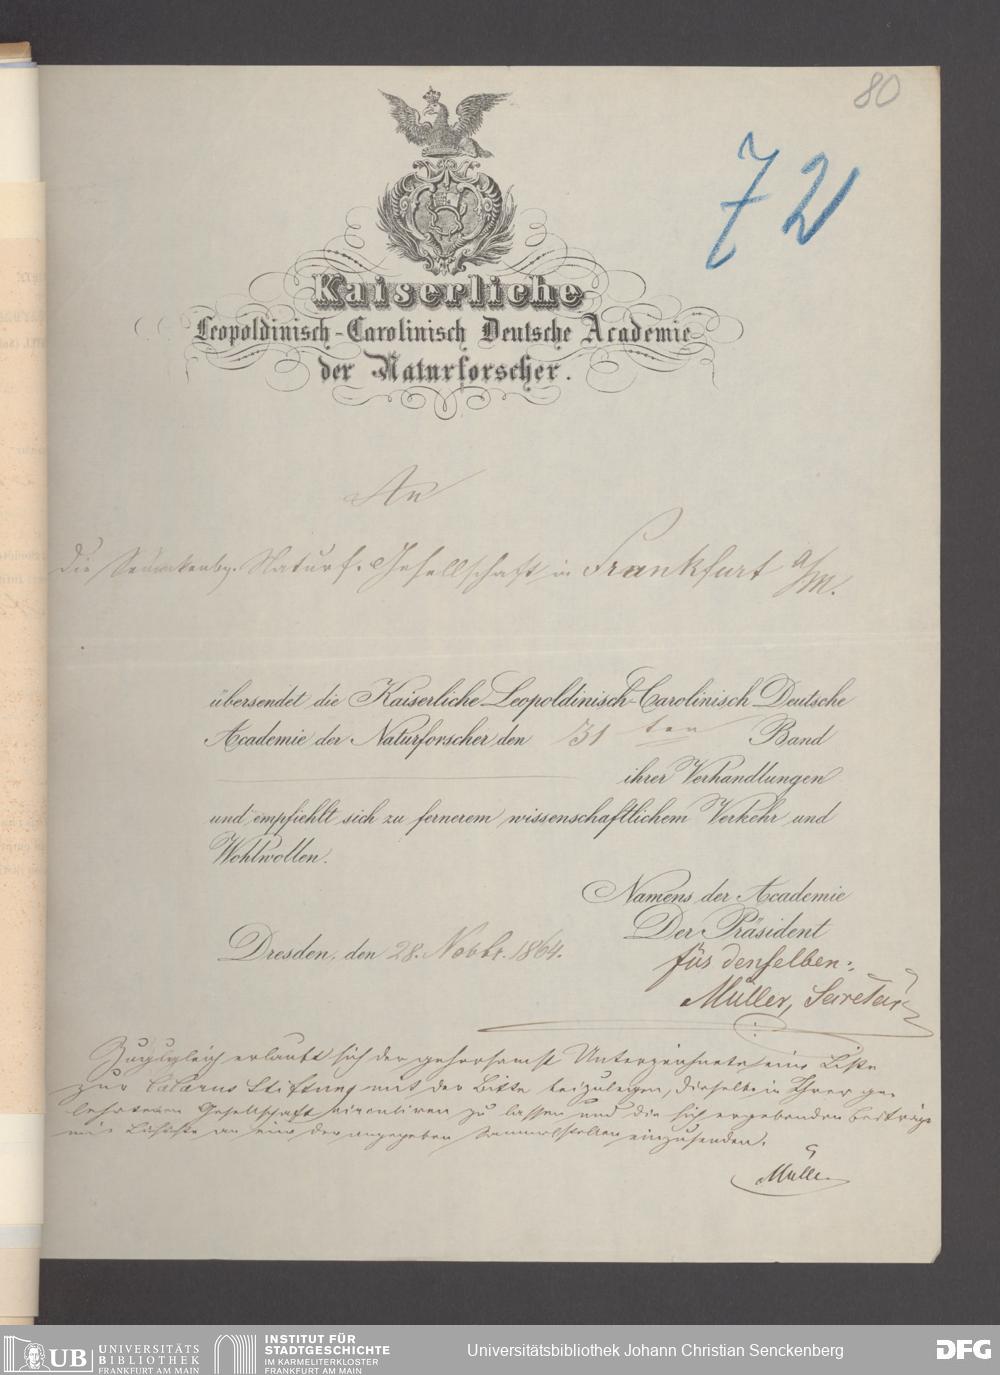 80
72
Kaiserliche
Leopoldinisch-Carolinisch Deutsche Academie
der Naturforscher.
An
die Senckenbg. Naturf. Gesellschaft in Frankfurt a/M.
übersendet die Kaiserliche Leopoldinisch-Carolinisch Deutsche
Academie der Naturforscher den 31 ten Band
ihrer Verhandlungen
und empfiehlt sich zu fernerem wissenschaftlichem Verkehr und
Wohlwollen.
Namens der Academie
Der Präsident
Dresden, den 28. Novbr. 1864.
für denselben:
Müller, Secretär
Zugleich erlaubt sich der gehorsamst Unterzeichnete eine Liste
zur Carus Stiftung mit der Bitte beizulegen, dieselbe in Ihrer ge-
lehrten Gesellschaft circuliren zu lassen und die sich ergebenden Beiträge
mit Liste an eine der angegeben Sammelstellen einzusenden.
Müller
UB UNIVERSITÄTS
BIBLIOTHEK
FRANKFURT AM MAIN
INSTITUT FÜR
STADTGESCHICHTE
IM KARMELITERKLOSTER
FRANKFURT AM MAIN
Universitätsbibliothek Johann Christian Senckenberg
DFG